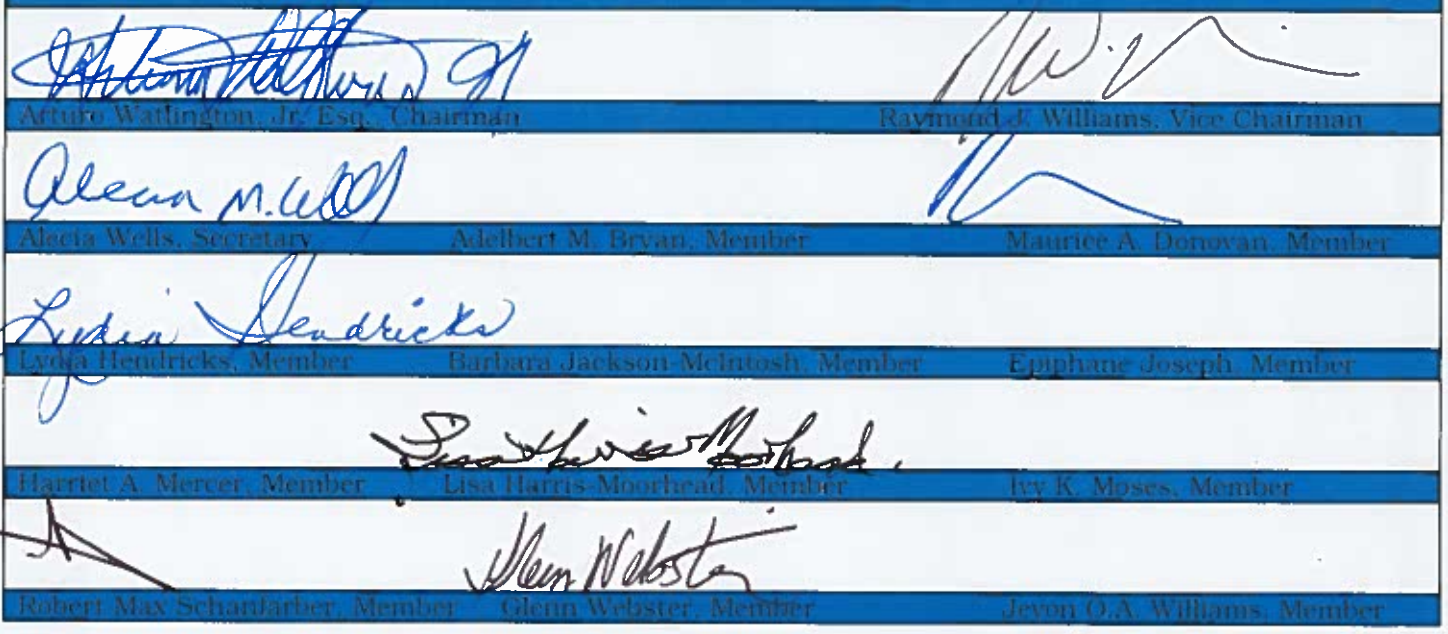 Arturo Watlington, Jr. Esq., Chairman Raymond J. Williams, Vice Chairman
Alecia M. Wells
Alecia Wells, Secretary Adelbert M. Bryan, Member Maurice A. Donovan, Member
Lydia Hendricks
Lydia Hendricks, Member Barbara Jackson-McIntosh, Member Epiphane Joseph, Member
Lisa Harris-Moorhead
Harriet A. Mercer, Member Lisa Harris-Moorhead, Member Ivy K. Moses, Member
Glenn Webster
Robert Max Schanfarber, Member Glenn Webster, Member Jevon O.A. Williams, Member